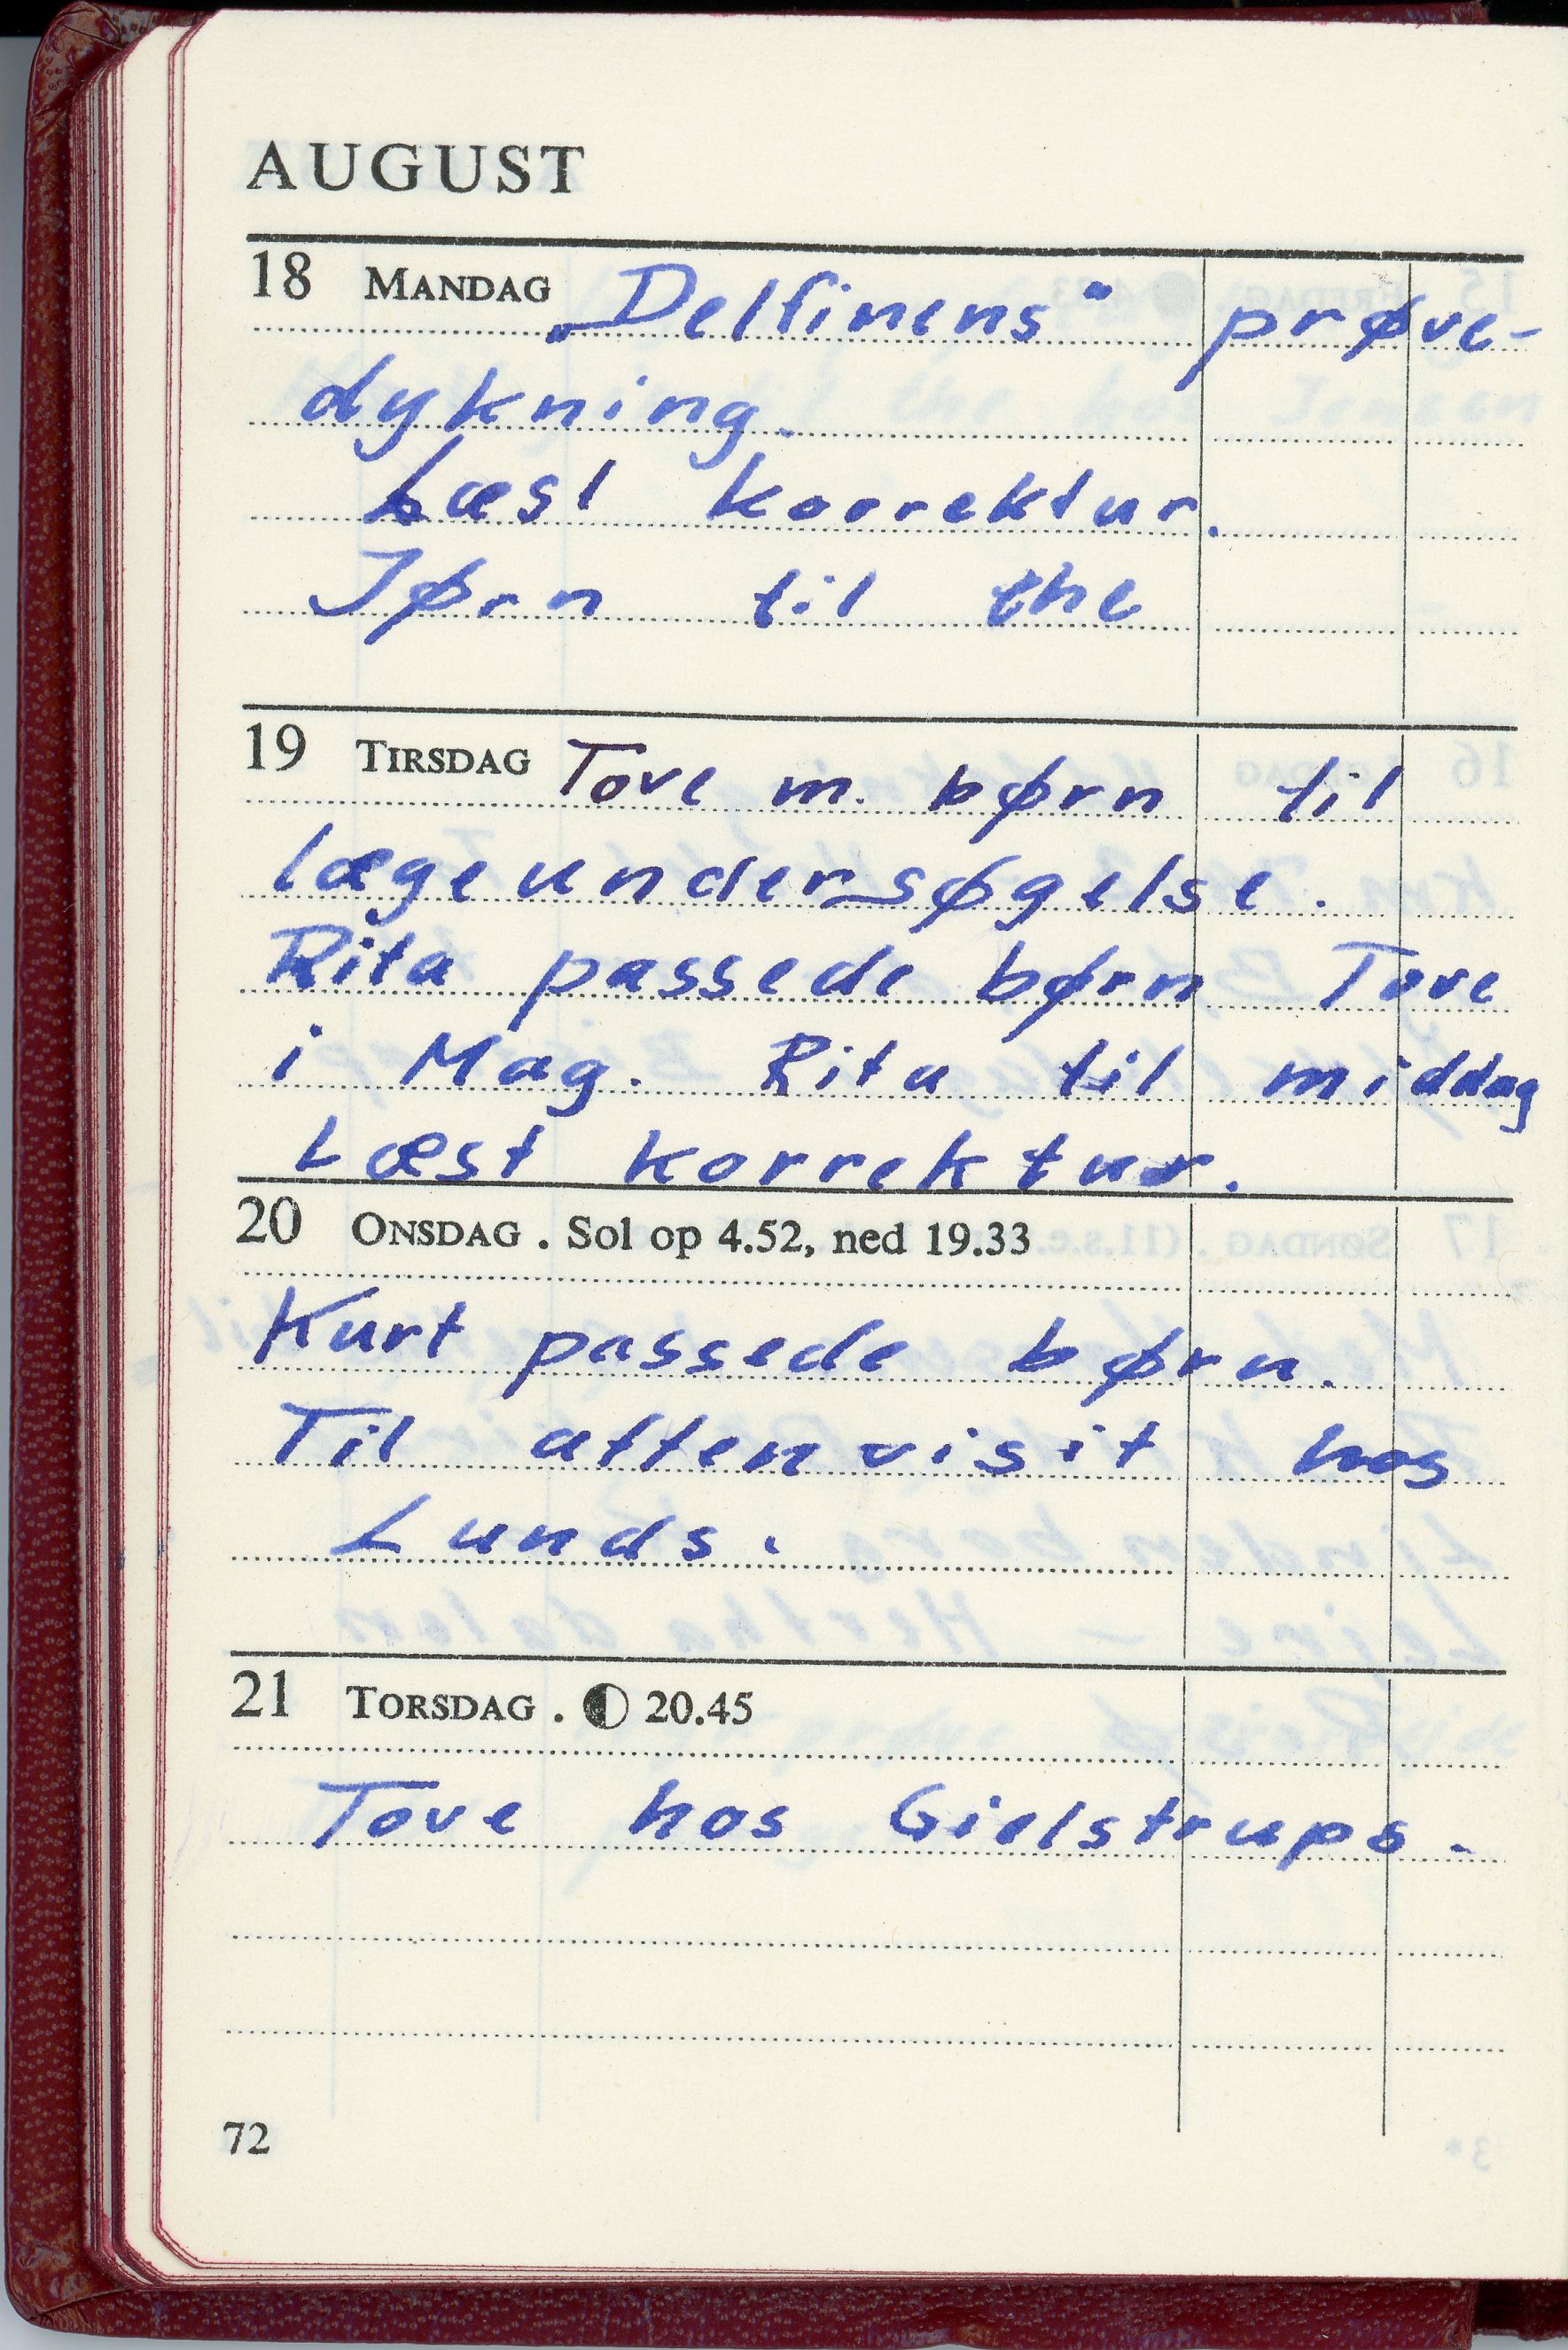 AUGUST
18 MANDAG „Delfinens" prøve-
dykning.
Læst korrektur.
Jørn til the
19 TIRSDAG Tove m. børn til
lægeundersøgelse.
Rita passede børn Tove
i Mag. Rita til middag
Læst korrektur.
20 ONSDAG . Sol op 4.52, ned 19.33
Kurt passede børn.
Til aftenvisit hos
Lunds.
21 TORSDAG . 20.45
Tove hos Gielstrups.
72